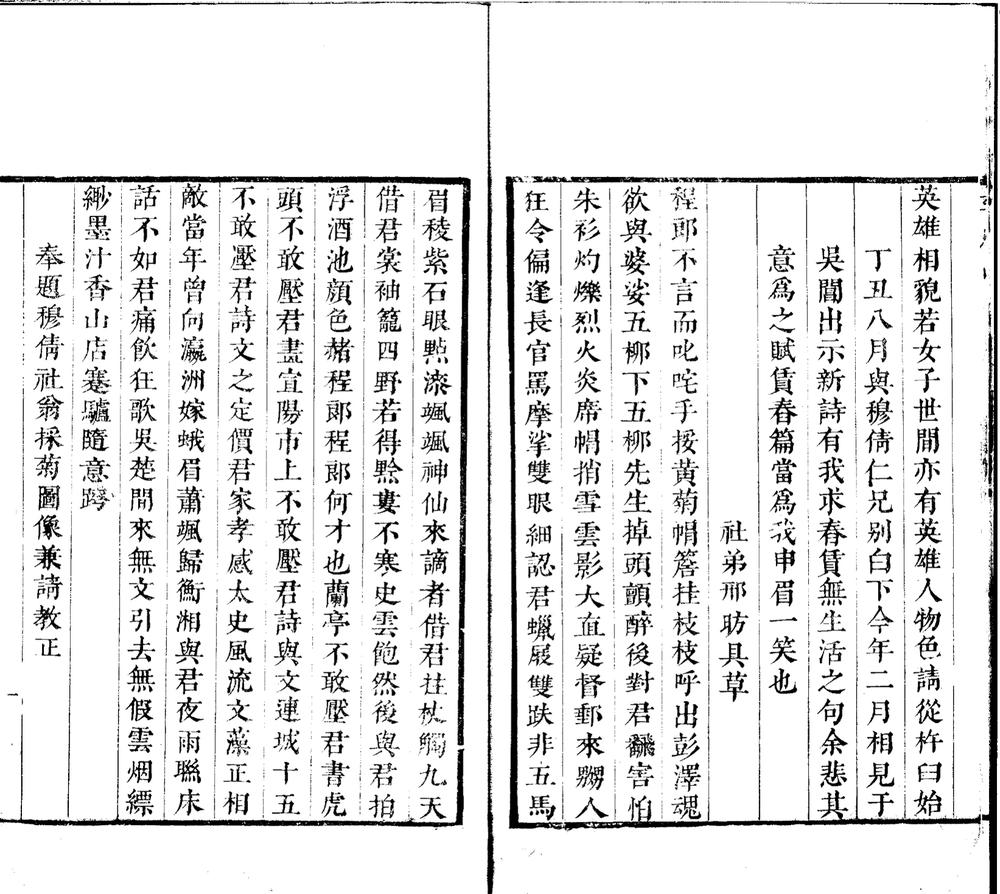 英雄相貌若女子世間亦有英雄人物色請從杵臼始
丁丑八月與穆倩仁兄别白下今年二月相見于
吳閶出示新詩有我求春賃無生活之句余悲其
意爲之賦賃春篇當爲我申眉一笑也
社弟邢昉具草
程郎不言而叱咤手挼黃菊帽簷挂枝枝呼出彭澤魂
欲與婆娑五柳下五柳先生掉頭顫醉後對君飜害怕
朱衫灼爍烈火炎席帽揹雪雲影大直疑督郵來嬲人
狂令偏逢長官罵摩挲雙眼細認君蠟屐雙趺非五馬
眉稜紫石眼㸃漆颯颯神仙來謫者借君拄杖觸九天
借君裳袖籠四野若得黔婁不寒史雲飽然後與君拍
浮酒池顏色赭程郎程郎何才也蘭亭不敢壓君書虎
頭不敢壓君畫宣陽市上不敢壓君詩與文連城十五
不敢壓君詩文之定價君家孝感太史風流文藻正相
敵當年曾向瀛洲嫁蛾眉蕭颯歸衡湘與君夜雨聮床
話不如君痛飲狂歌吳楚間來無文引去無假雲烟縹
緲墨汁香山店蹇驢隨意跨
奉題穆倩社翁採菊圖像兼請教正
一